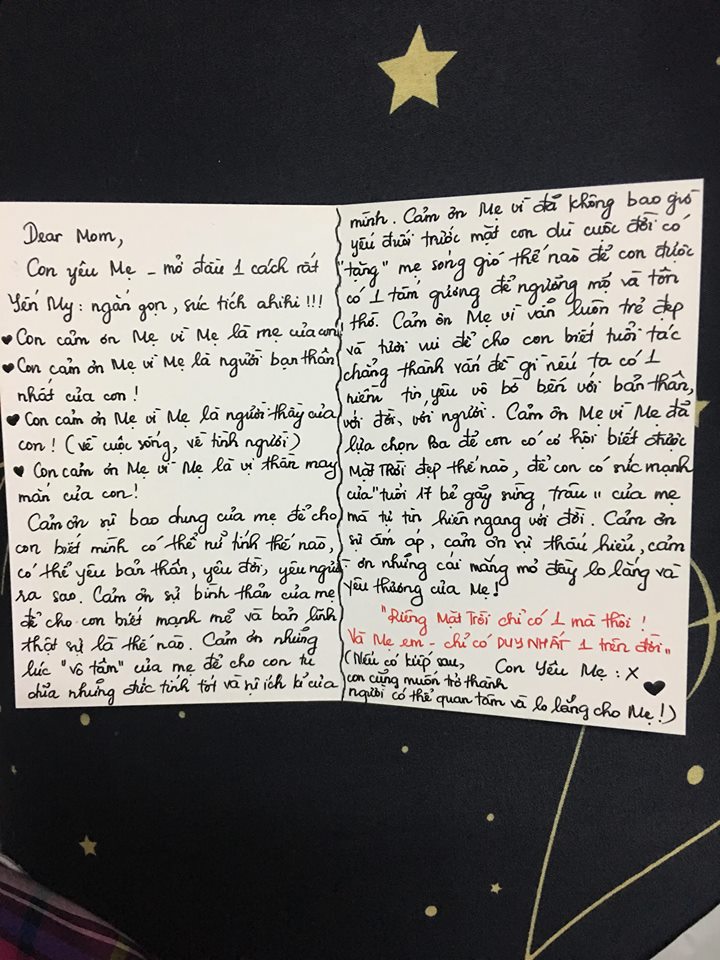 Dear Mom,
Con yêu Mẹ - mở đầu 1 cách rất
Yến My : ngắn gọn, súc tích ahihi !!!
♥ Con cảm ơn Mẹ vì Mẹ là mẹ của con!
♥ Con cảm ơn Mẹ vì Mẹ là người bạn thân
nhất của con !
♥ Con cảm ơn Mẹ vì Mẹ là người thầy của
con ! (về cuộc sống, về tình người)
♥ Con cảm ơn Mẹ vì Mẹ là vị thần may
mắn của con!
Cảm ơn sự bao dung của mẹ để cho
con biết mình có thể nữ tính thế nào,
có thể yêu bản thân, yêu đời, yêu người
ra sao. Cảm ơn sự bình thản của mẹ
để cho con biết mạnh mẽ và bản lĩnh
thật sự là thế nào. Cảm ơn những
lúc "vô tâm" của mẹ để cho con tự
chữa những đức tính tốt và sự ích kỉ của
mình. Cảm ơn Mẹ vì đã không bao giờ
yếu đuối trước mặt con dù cuộc đời có
"tặng" mẹ sóng gió thế nào để con được
có 1 tấm gương để ngưỡng mộ và tôn
thờ. Cảm ơn Mẹ vì vẫn luôn trẻ đẹp
và tươi vui để cho con biết tuổi tác
chẳng thành vấn đề gì nếu ta có 1
niềm tin, yêu vô bờ bến với bản thân,
với đời, với người. Cảm ơn Mẹ vì Mẹ đã
lựa chọn Ba để con có cơ hội biết được
Mặt Trời đẹp thế nào, để con có sức mạnh
của "tuổi 17 bẻ gãy sừng trâu" của mẹ
mà tự tin hiên ngang với đời. Cảm ơn
sự ấm áp, cảm ơn sự thấu hiểu, cảm
ơn những cái mắng mỏ đầy lo lắng và
yêu thương của Mẹ!
"Riêng Mặt Trời chỉ có 1 mà thôi !
Và Mẹ em - chỉ có DUY NHẤT 1 trên đời"
(Nếu có kiếp sau, Con Yêu Mẹ : X
con cũng muốn trở thành ♥
người có thể quan tâm và lo lắng cho Mẹ !)